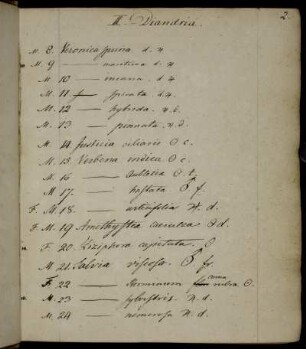 2.
II. Diandria.
M. 8. Veronica spuria d. ♃
M. 9 —— d. ♃
M. 10 —— incana d. ♃
M. 11 —— spicata d. ♃.
M. 12 —— hybrida. ♃. d.
M. 13 —— pinnata. ♃. d.
M. 14 Justicia ciliaris ☉ c.
M. 15 Verbena indica ☉ c.
M. 16 —— Aubletia ☉ t.
M. 17. —— hastata ♂ f.
F. M. 18. —— urticifolia ♃. d.
F. M. 19 Amethystea caerulea ☉ d.
F. 20 Ziziphora capitata. ☉
M. 21. Salvia viscosa. ♂ fr.
F. 22 —— Horminum rubra ☉.
M. 23 —— sylvestris. ♃. d.
M. 24 —— nemorosa ♃. d.